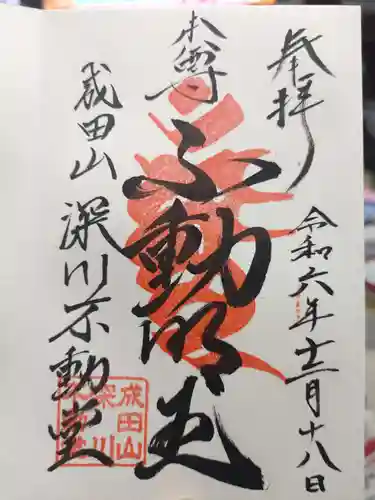 奉拝
令和六年十二月十八日
本尊
不動明王
成田山
深川不動堂
成田山
深川